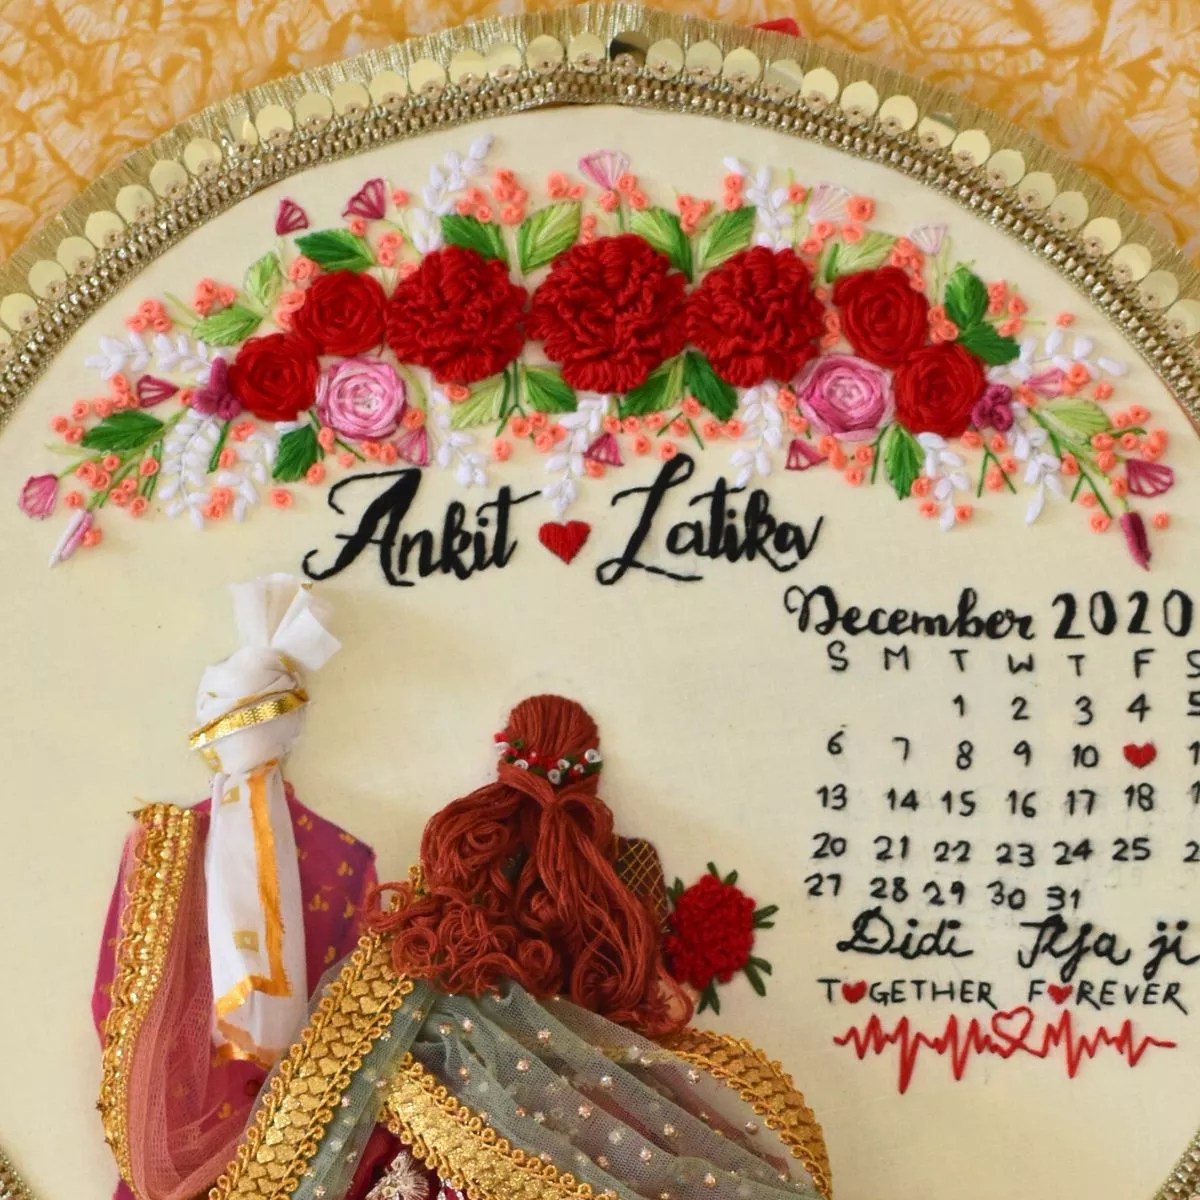 Ankit ♥ Latika
December 2020
S M T W T F S
1 2 3 4 5
6 7 8 9 10 ♥
13 14 15 16 17 18
20 21 22 23 24 25
27 28 29 30 31
Didi Jija ji
T♥GETHER F♥REVER